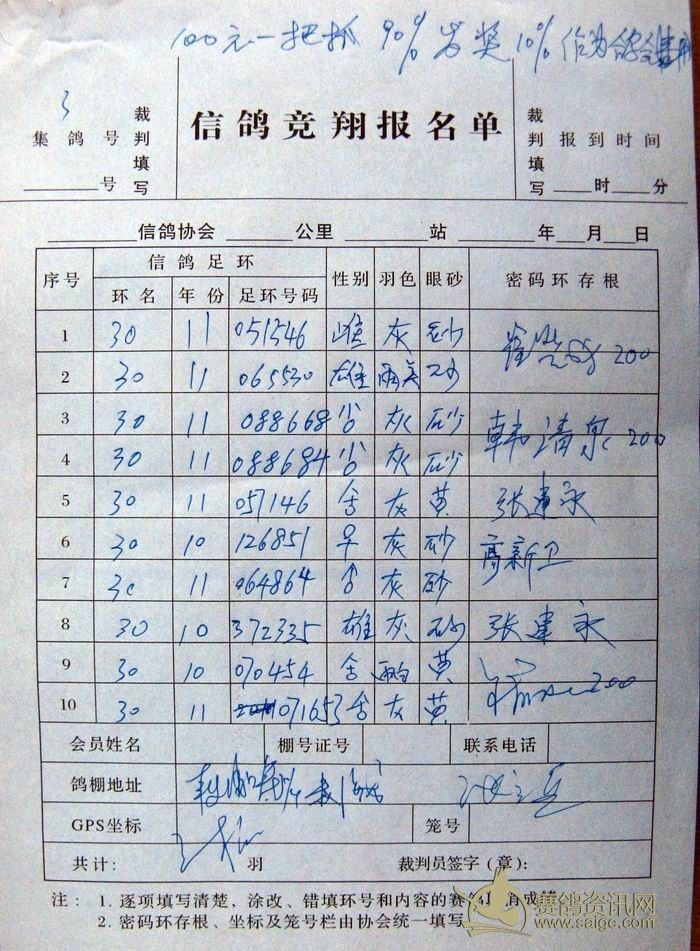 100元一把抓 90% 发奖 10% 作为
3
裁判填写
集鸽号
号
信鸽竞翔报名单
裁判填写
报到时间
时 分
信鸽协会 公里 站 年 月 日
序号 信鸽足环 性别 羽色 眼砂 密码环存根
环名 年份 足环号码
1 30 11 051546 雌 灰 砂 200
2 30 11 065530 雄
3 30 11 088668 灰 砂 韩清泉 200
4 30 11 088684 灰 砂
5 30 11 051146 灰 黄 张建永
6 30 10 126851 灰 砂 高新卫
7 30 11 064864 灰 砂
8 30 10 372335 雄 灰 砂 张建永
9 30 10 070454 黄
10 30 11 071653 灰 黄 200
会员姓名 棚号证号 联系电话
鸽棚地址
GPS坐标 笼号
共计: 羽 裁判员签字(章):
注: 1. 逐项填写清楚,涂改、错填环号和内容的赛鸽 消成绩
2. 密码环存根、坐标及笼号栏由协会统一填写
赛鸽资讯网
www.saige.com